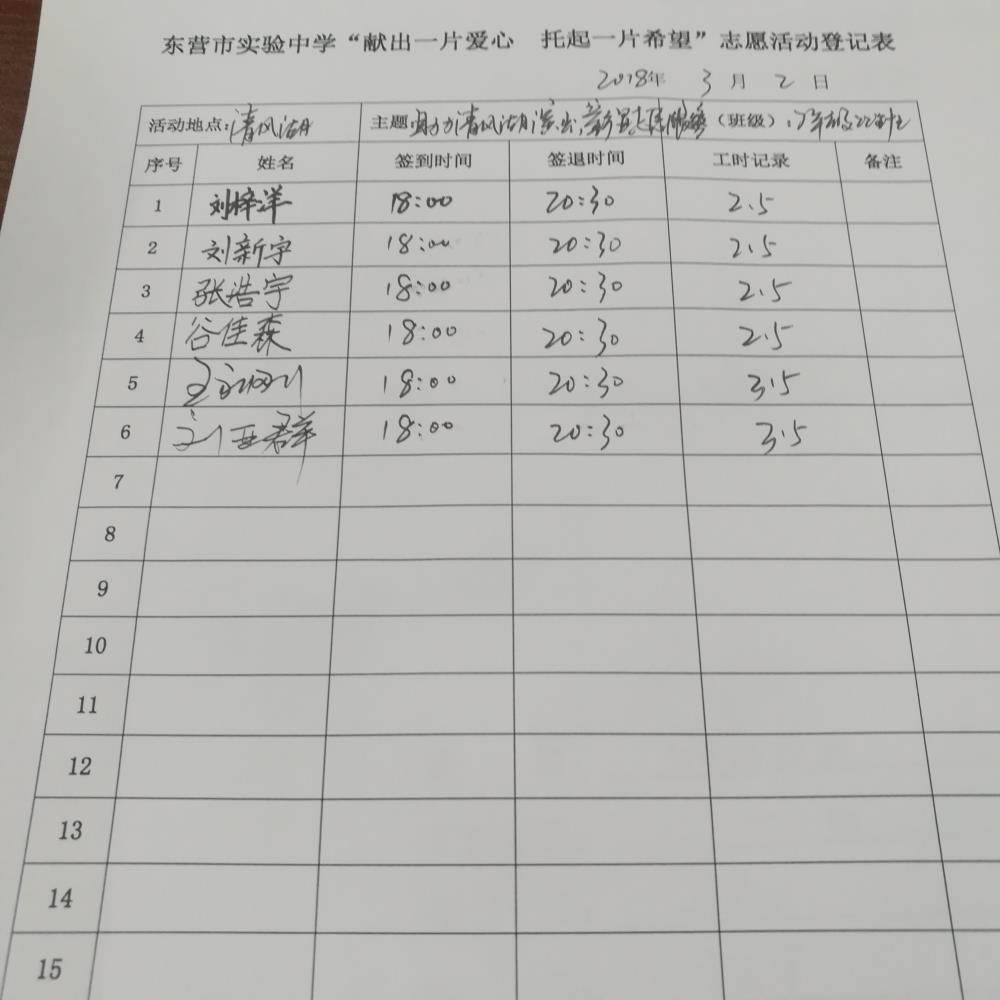 东营市实验中学“献出一片爱心 托起一片希望”志愿活动登记表
2018年 3 月 2 日
活动地点:清风湖 主题: 清风湖演出, （班级）: 年级22班
序号 姓名 签到时间 签退时间 工时记录 备注
1 刘梓洋 18:00 20:30 2.5
2 刘新宇 18:00 20:30 2.5
3 张浩宇 18:00 20:30 2.5
4 谷佳森 18:00 20:30 2.5
5 18:00 20:30 3.5
6 刘亚群 18:00 20:30 3.5
7
8
9
10
11
12
13
14
15